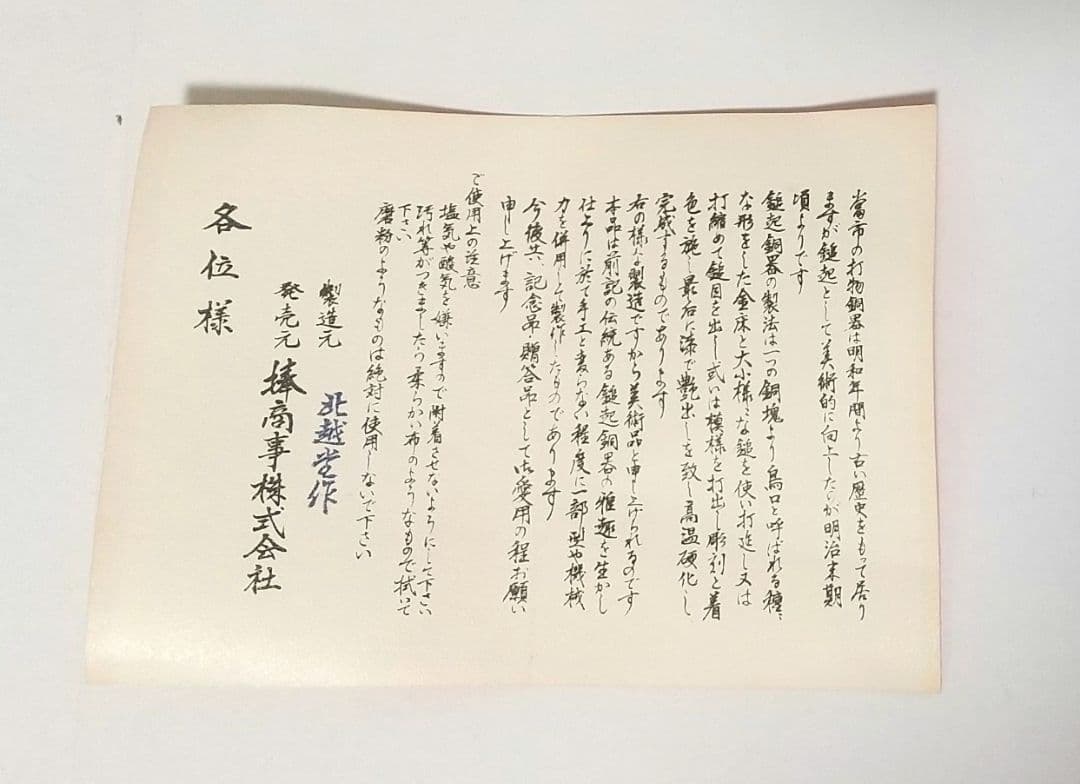 當市の打物銅器は明和年間より古い歴史をもって居り
ますが鎚起として美術的に向上したのが明治末期
頃よりです
鎚起銅器の製法は一つの銅塊より鳥口と呼ばれる種々
な形をした金床と大小様々な鎚を使い打延し又は
打縮めて鎚目を出し或いは模様を打出し彫刻と着
色を施し最后に漆で艶出しを致し高温硬化し
完成するものであります
右の様な製造ですから美術品と申し上げられるのです
本品は前記の伝統ある鎚起銅器の雅趣を生かし
仕上りに於て手工と変らない程度に一部型や機械
力を併用して製作したものであります
今後共、記念品贈答品として御愛用の程お願い
申し上げます
ご使用上の注意
塩気や酸気を嫌いますので附着させないようにして下さい
汚れ等がつきましたら柔らかい布のようなもので拭いて
下さい
磨粉のようなものは絶対に使用しないで下さい
製造元 北越堂作
発売元 捧商事株式会社
各位様